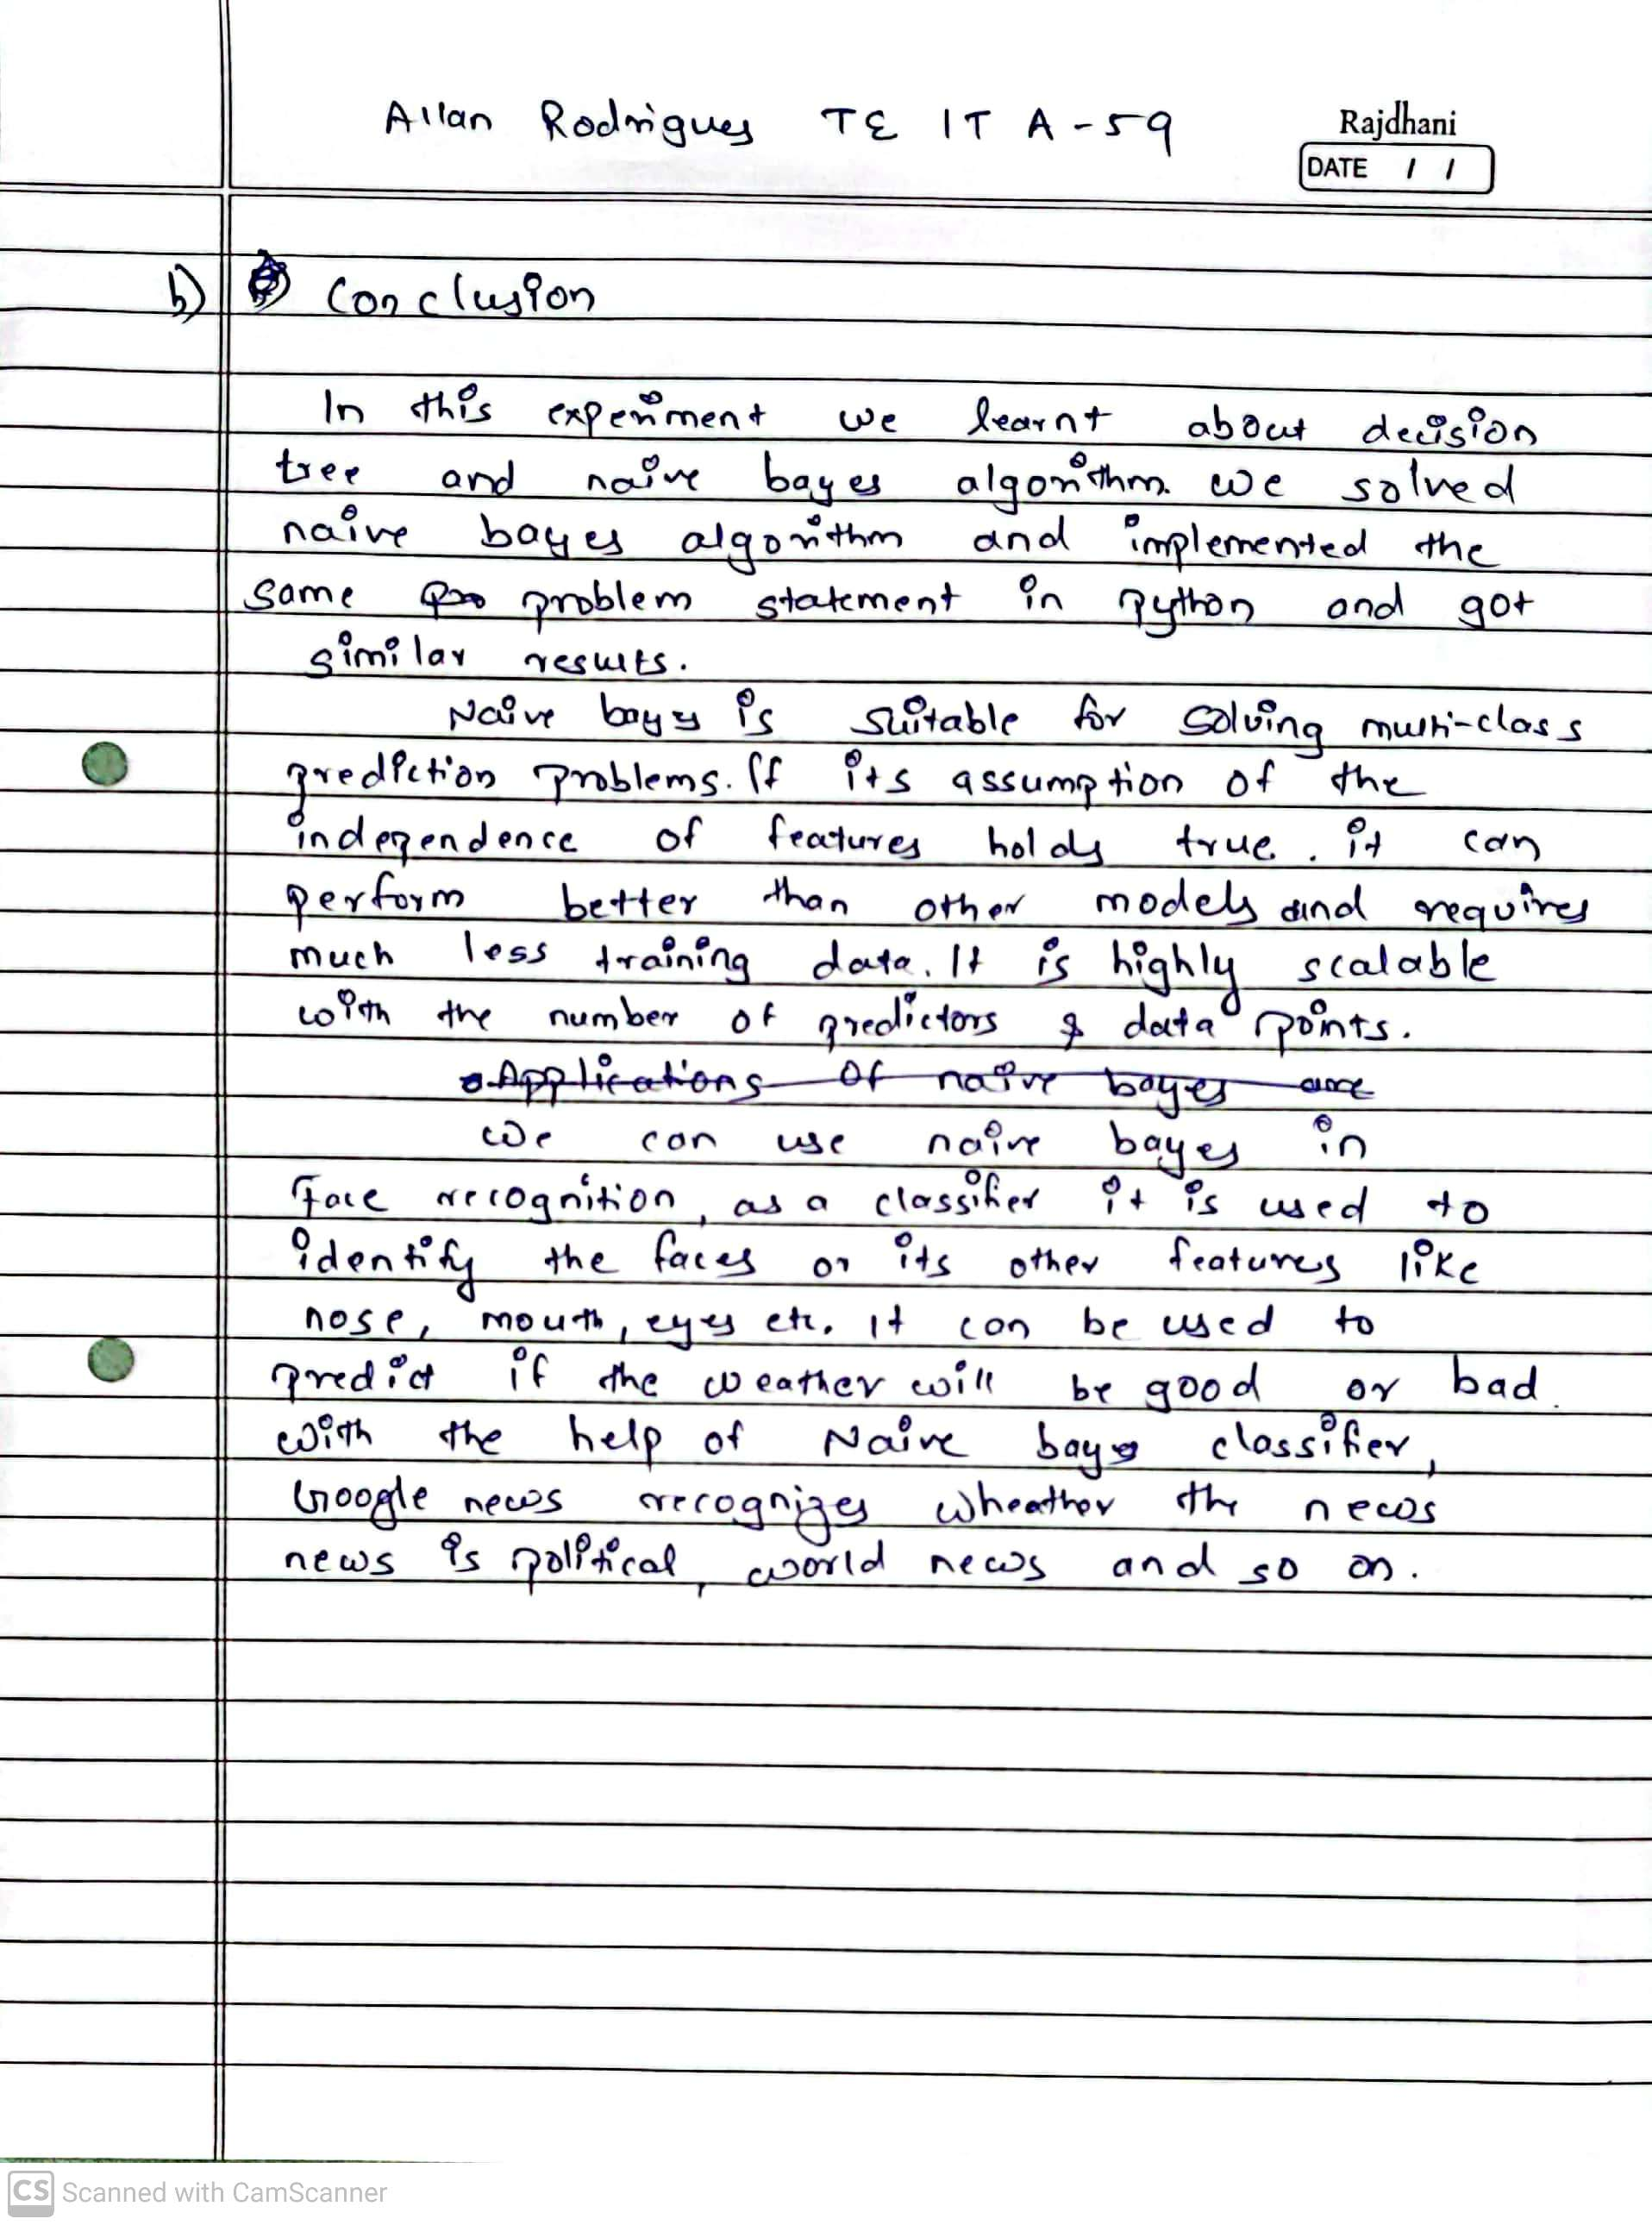 Allan Rodrigues TE IT A-59
Rajdhani
DATE / /
b) Conclusion
In this experiment we learnt about decision
tree and naive bayes algorithm. we solved
naive bayes algorithm and implemented the
same pro problem statement in python and got
similar results.
Naive bayes is suitable for solving multi-class
prediction problems. If its assumption of the
independence of features holds true. it can
perform better than other models and requires
much less training data. It is highly scalable
with the number of predictors & data points.
Applications of naive bayes are
we can use naive bayes in
Face recognition, as a classifier it is used to
identify the faces or its other features like
nose, mouth, eyes etc. it can be used to
predict if the weather will be good or bad.
with the help of Naive bayes classifier,
Google news recognizes wheather the news
news is political, world news and so on.
CS Scanned with CamScanner